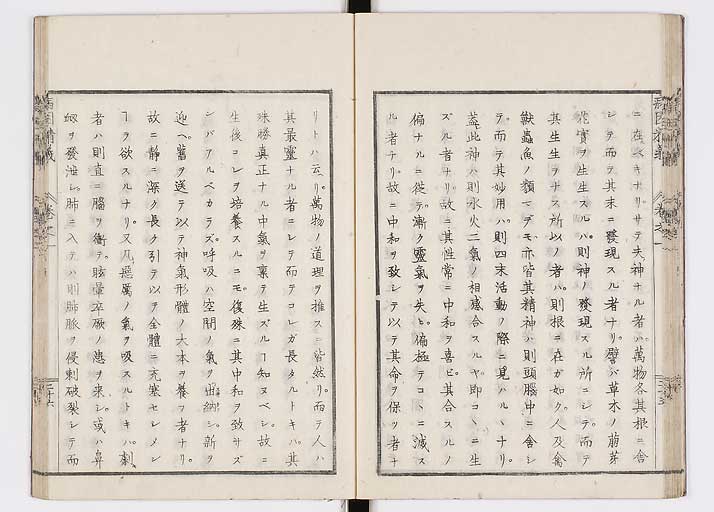 ニ在ベキナリサテ夫神ナル者ハ萬物各其根ニ舎
シテ而テ其末ニ發現スル者ナリ。譬バ草木ノ萠芽
花實ヲ生生スルハ則神ノ發現スル所ニシテ而テ
其生生ヲナス所以ノ者ハ則根ニ在ガ如ク人及禽
獣蟲魚ノ類マデモ亦皆其精神ハ則頭腦中ニ舎シ
テ而テ其妙用ハ則四末活動ノ際ニ見ハルヽナリ。
蓋此神ハ則水火二氣ノ相感合スルヤ即コヽニ生
ズル者ナリ故ニ其性常ニ中和ヲ喜ビ其合スルノ
偏ナルニ從テ漸ク靈氣ヲ失ヒ偏極テコヽニ滅ス
ル者ナリ。故ニ中和ヲ致シテ以テ其命ヲ保ツ者ナ
リトハ云リ。萬物ノ道理ヲ推スニ皆然リ。而テ人ハ
其最靈ナル者ニシテ而テコレガ長タルトキハ其
殊勝真正ナル中氣ヲ稟テ生ズルヿ知ヌベシ。故ニ
生後コレヲ培養スルニモ復殊ニ其中和ヲ致サズ
ンバアルベカラズ。呼吸ハ空間ノ氣ヲ出納シ新ヲ
迎ヘ舊ヲ送テ以テ神氣形體ノ大本ヲ養フ者ナリ。
故ニ静ニ深ク長ク引テ以テ全體ニ充塞セシメン
ヿヲ欲スルナリ。又凡惡厲ノ氣ヲ吸スルトキハ刺
者ハ則直ニ腦ヲ衝テ眩暈卒厥ノ患ヲ來シ。或ハ鼻
衂ヲ發泄シ肺ニ入テハ則肺脉ヲ侵刺破裂シテ而
卷之一
三十六